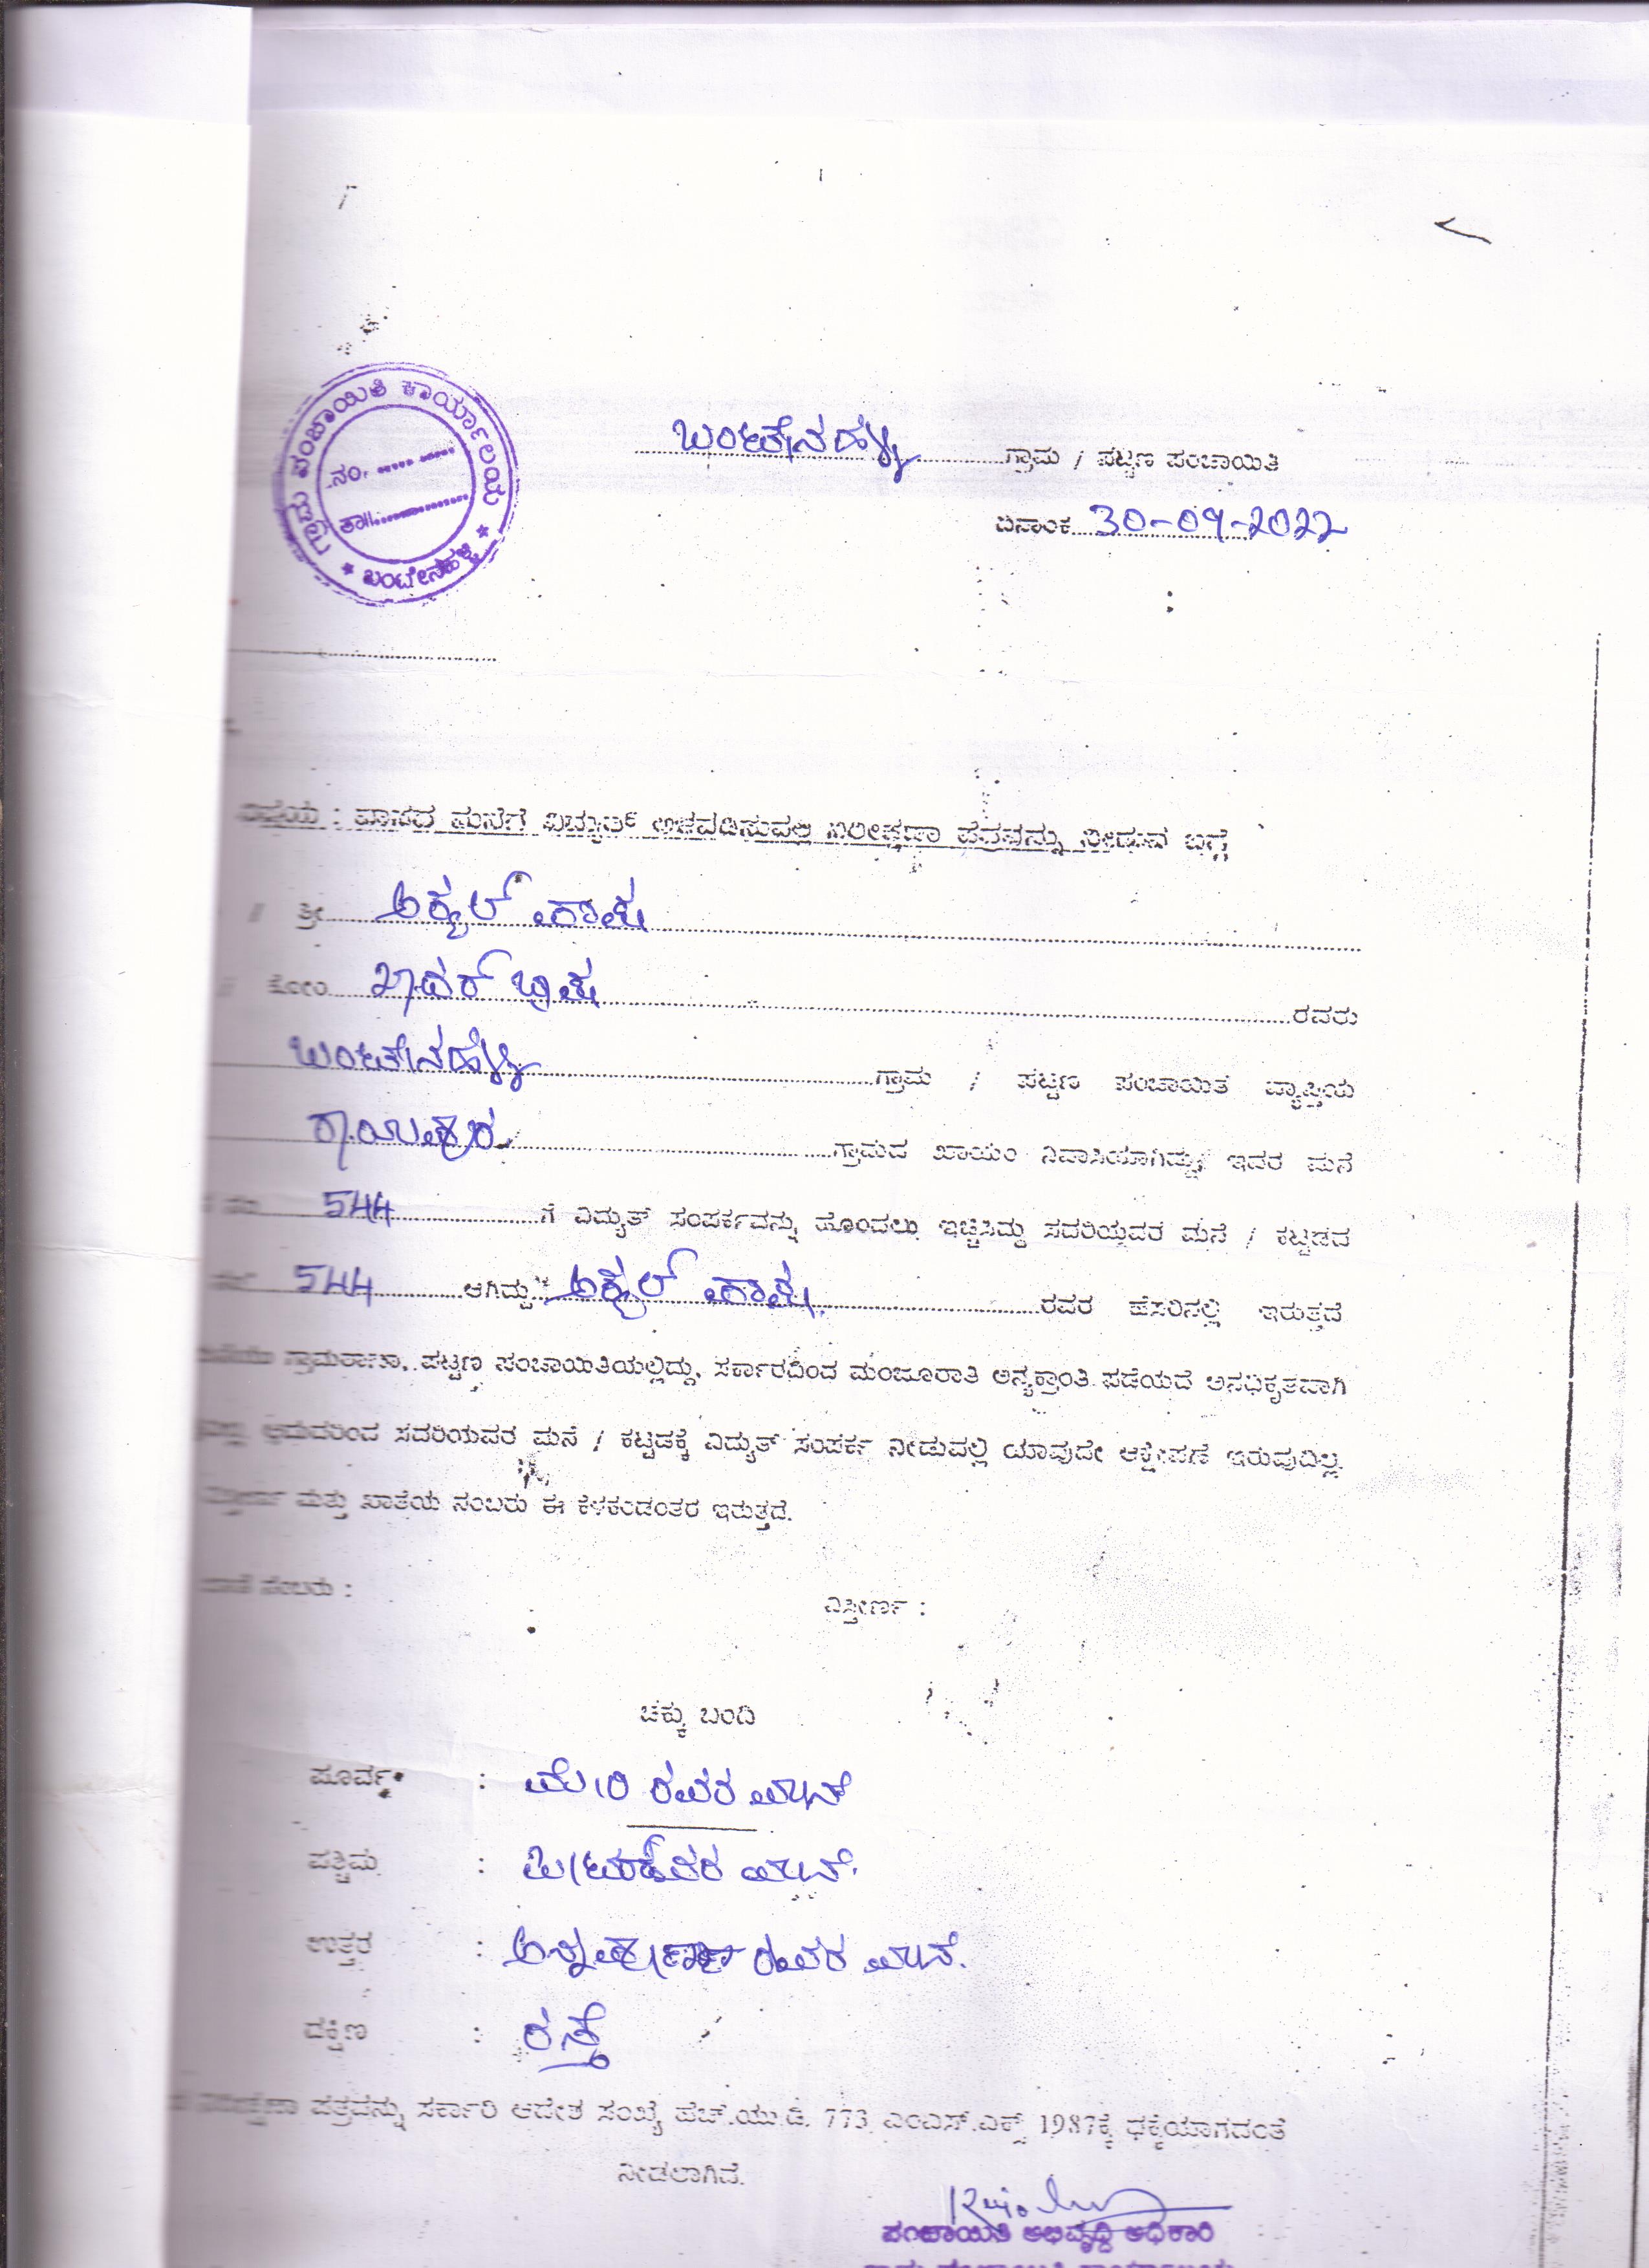 ಗ್ರಾಮ ಪಂಚಾಯಿತಿ ಕಾರ್ಯಾಲಯ
ನಂ.
ತಾ||
* ಬಂಟೇನಹಳ್ಳಿ *
ಬಂಟೇನಹಳ್ಳಿ ಗ್ರಾಮ / ಪಟ್ಟಣ ಪಂಚಾಯಿತಿ
ದಿನಾಂಕ 30-09-2022
ವಿಷಯ : ವಾಸದ ಮನೆಗೆ ವಿದ್ಯುತ್ ಅಳವಡಿಸುವಲ್ಲಿ ನಿರೀಕ್ಷಣಾ ಪತ್ರವನ್ನು ನೀಡುವ ಬಗ್ಗೆ
ಶ್ರೀ ಅಕ್ಮಲ್ ಪಾಷ
ಕೋಂ ಖಾದರ್ ಭಾಷ ರವರು
ಬಂಟೇನಹಳ್ಳಿ ಗ್ರಾಮ / ಪಟ್ಟಣ ಪಂಚಾಯಿತಿ ವ್ಯಾಪ್ತಿಯ
ರಾಯಪುರ ಗ್ರಾಮದ ಖಾಯಂ ನಿವಾಸಿಯಾಗಿದ್ದು, ಇವರ ಮನೆ
544 ಗೆ ವಿದ್ಯುತ್ ಸಂಪರ್ಕವನ್ನು ಹೊಂದಲು ಇಚ್ಚಿಸಿದ್ದು ಸದರಿಯವರ ಮನೆ / ಕಟ್ಟಡದ
544 ಆಗಿದ್ದು ಅಕ್ಮಲ್ ಪಾಷ ರವರ ಹೆಸರಿನಲ್ಲಿ ಇರುತ್ತದೆ
ಪಟ್ಟಣ ಪಂಚಾಯಿತಿಯಲ್ಲಿದ್ದು, ಸರ್ಕಾರದಿಂದ ಮಂಜೂರಾತಿ ಅನ್ಯಕ್ರಾಂತಿ ಪಡೆಯದೆ ಅನಧಿಕೃತವಾಗಿ
ಆದುದರಿಂದ ಸದರಿಯವರ ಮನೆ / ಕಟ್ಟಡಕ್ಕೆ ವಿದ್ಯುತ್ ಸಂಪರ್ಕ ನೀಡುವಲ್ಲಿ ಯಾವುದೇ ಆಕ್ಷೇಪಣೆ ಇರುವುದಿಲ್ಲ.
ಮತ್ತು ಖಾತೆಯ ನಂಬರು ಈ ಕೆಳಕಂಡಂತರ ಇರುತ್ತದೆ.
ಖಾತೆ ನಂಬರು : ವಿಸ್ತೀರ್ಣ :
ಚಕ್ಕು ಬಂದಿ
ಪೂರ್ವ : ರವರ
ಪಶ್ಚಿಮ :
ಉತ್ತರ : ರವರ
ದಕ್ಷಿಣ : ರಸ್ತೆ
ಪತ್ರವನ್ನು ಸರ್ಕಾರಿ ಆದೇಶ ಸಂಖ್ಯೆ ಹೆಚ್.ಯು.ಡಿ. 773 ಎಂಎಸ್.ಎಕ್ಸ್ 1987ಕ್ಕೆ ಧಕ್ಕೆಯಾಗದಂತೆ
ನೀಡಲಾಗಿದೆ.
ಪಂಚಾಯಿತಿ ಅಭಿವೃದ್ಧಿ ಅಧಿಕಾರಿ